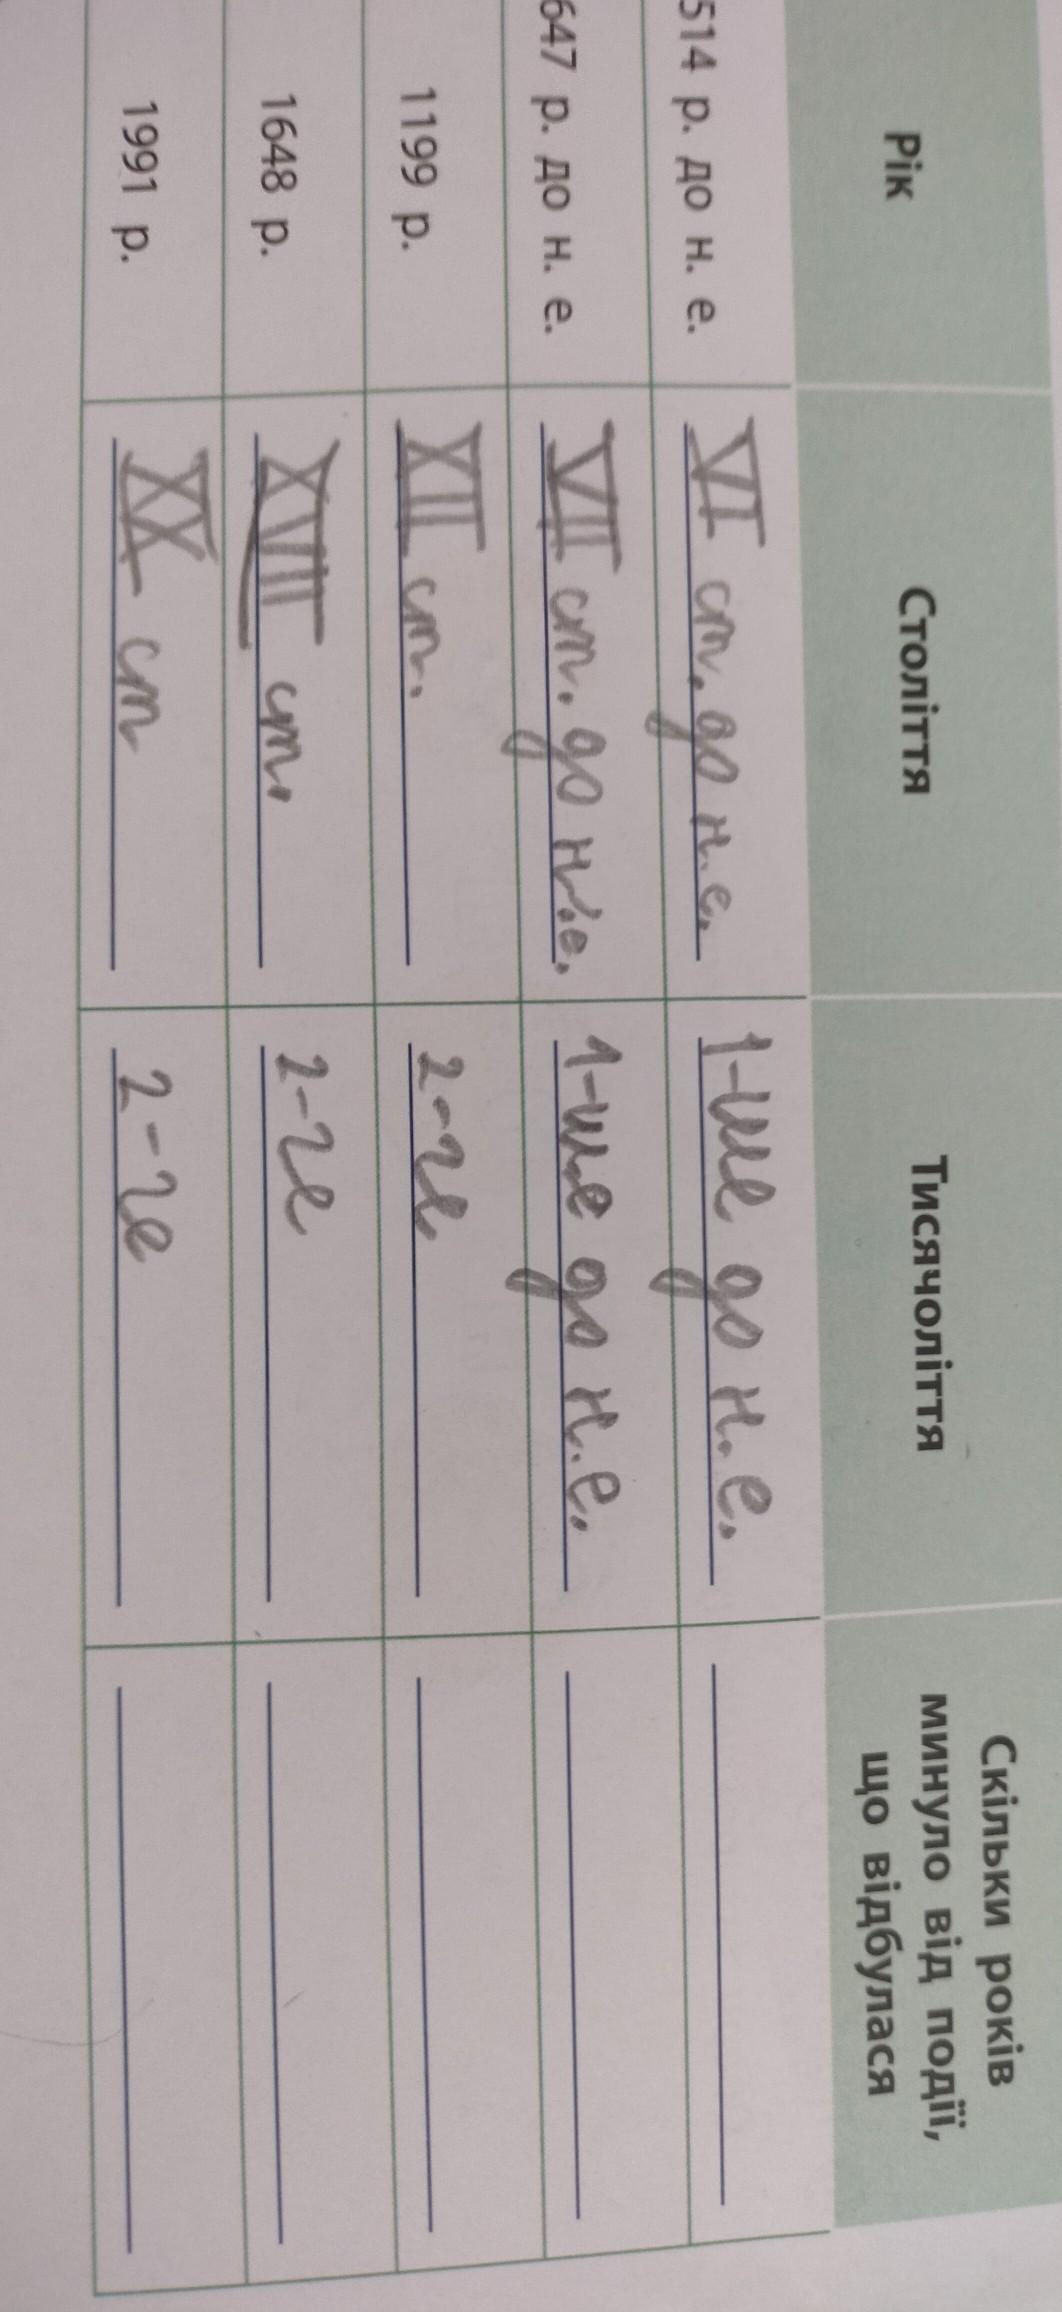 Рік Століття Тисячоліття Скільки років
минуло від події,
що відбулася
514 р. до н. е. VI ст. до н.е. 1-ше до н.е.
647 р. до н. е. VII ст. до н.е. 1-ше до н.е.
1199 р. XII ст. 2-ге
1648 р. XVIII ст. 2-ге
1991 р. XX ст 2-ге